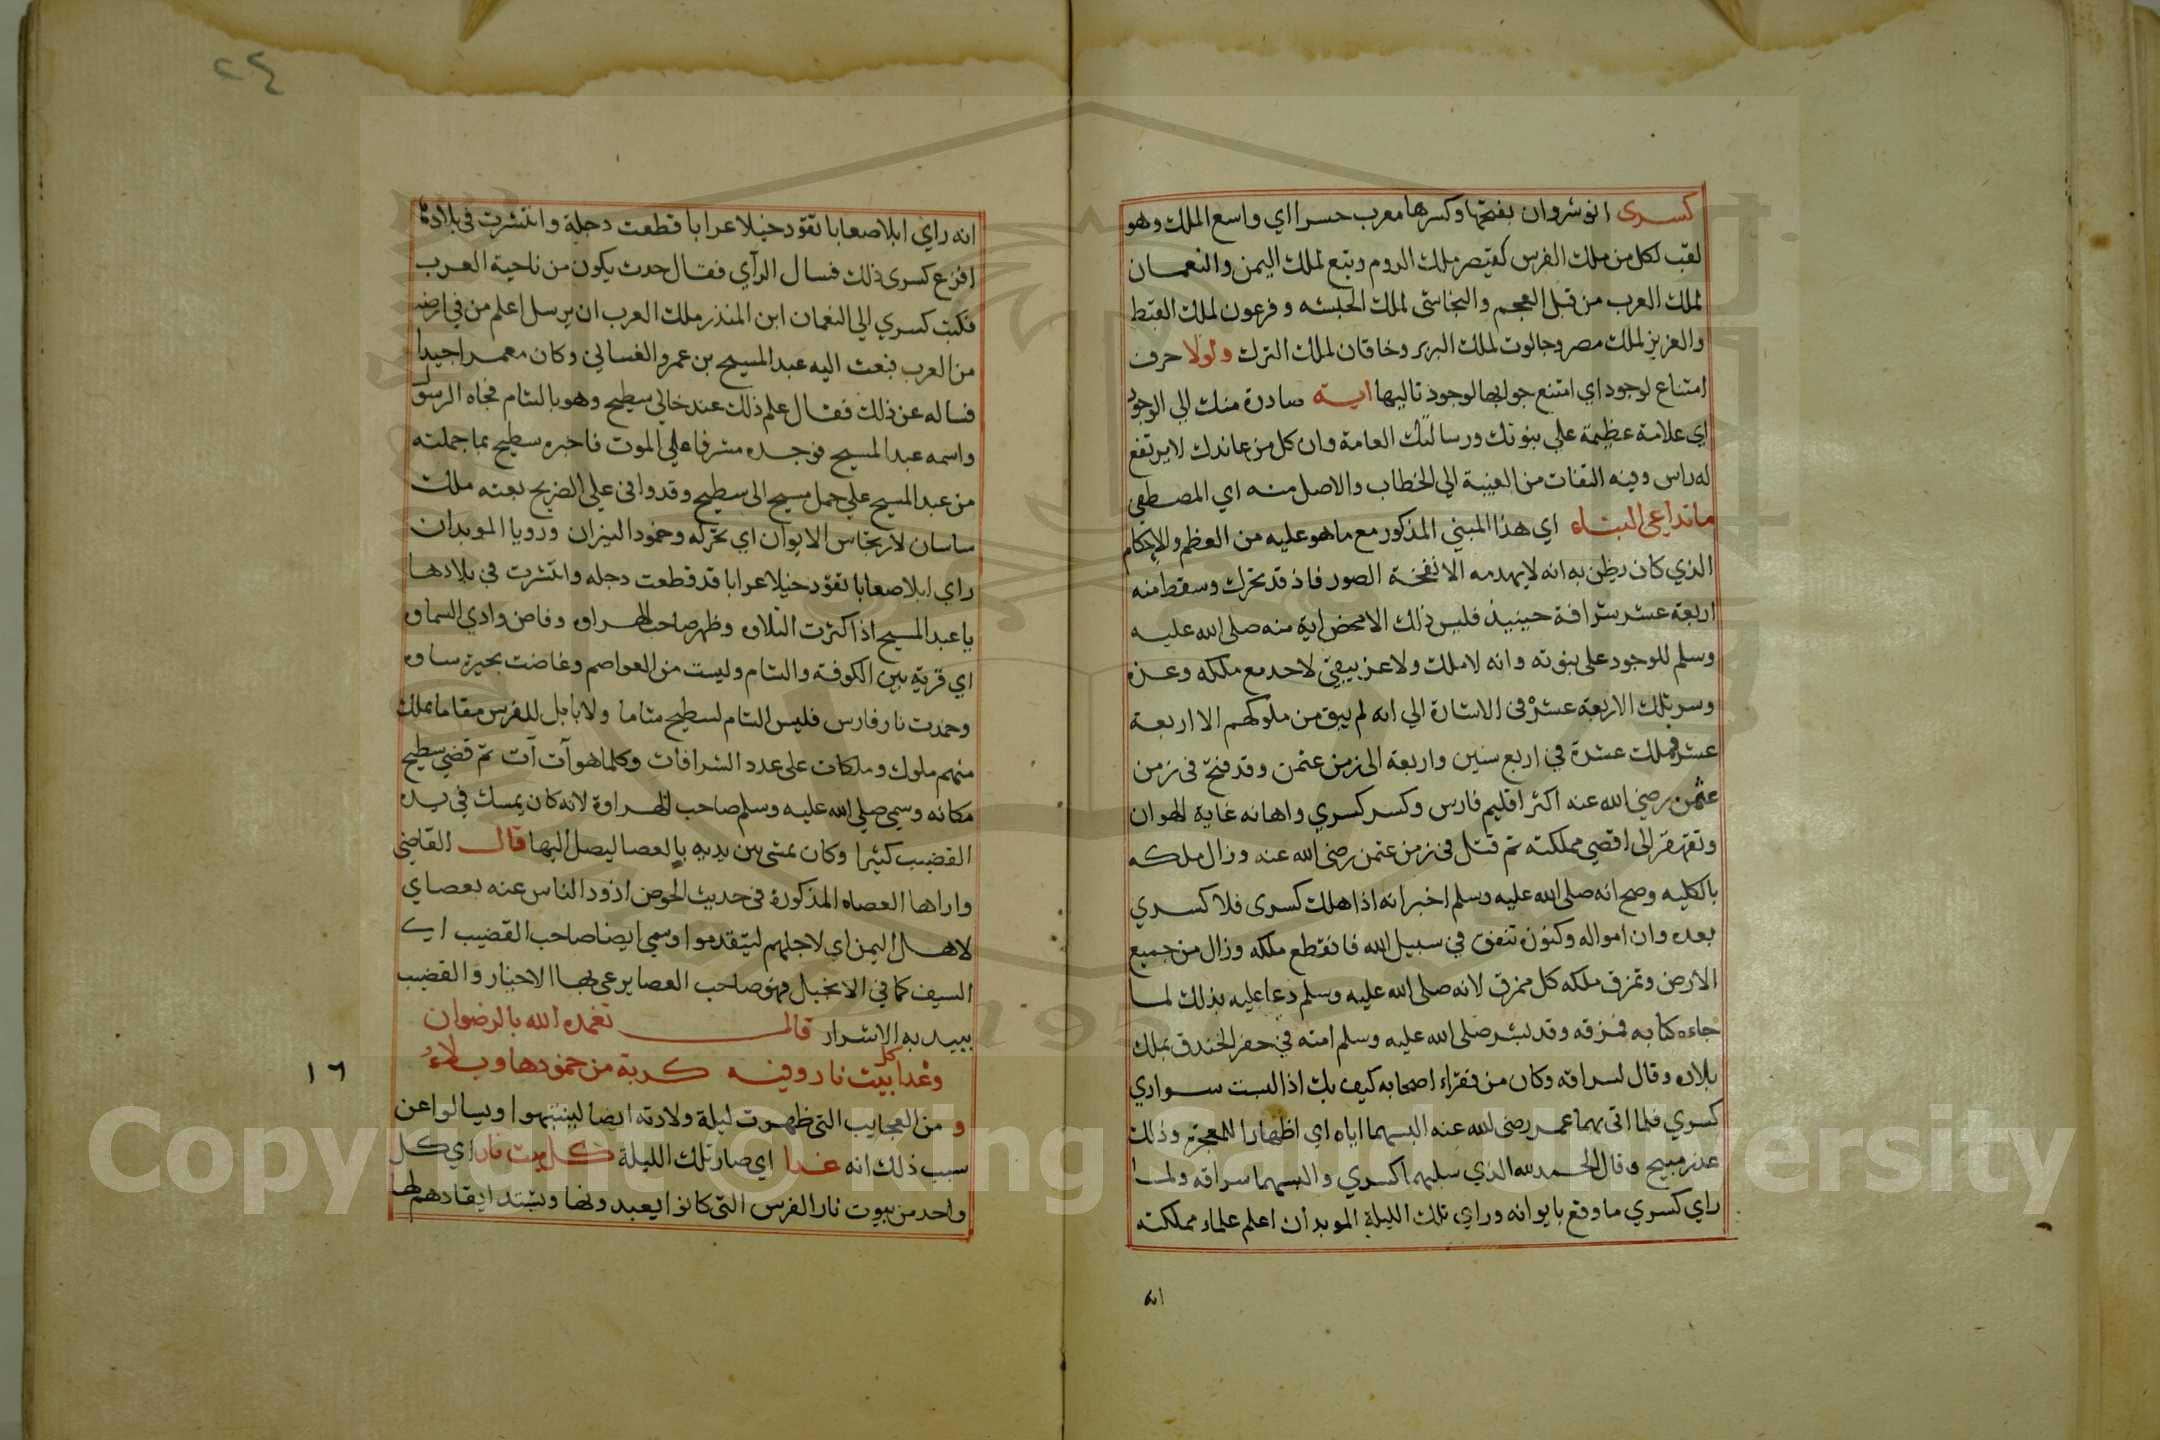 كسرى انوشروان بفتحها وكسرها معرب خسرا اي واسع الملك وهو
لقب لكل من ملك الفرس كقيصر ملك الروم وتبع لملك اليمن والنعمان
لملك العرب من قبل العجم والنجاشي لملك الحبشه وفرعون لملك القبط
والعزيز لملك مصر وجالوت لملك البربر وخاقان لملك الترك ولولا حرف
امتناع لوجود اي امتنع جوابها لوجود تاليها اية صادرة منك الي الوجود
اي علامة عظيمة علي نبوتك ورسالتك العامة وان كل من عاندك لا يرتفع
له راس وفيه التفات من الغيبة الي الخطاب والاصل منه اي المصطفي
ما تداعي البناء اي هذا المبني المذكور مع ما هو عليه من العظم والاحكام
الذي كان يظن به انه لا يهدمه الا نفخة الصور فاذ قد تحرك وسقط منه
اربعة عشر شرافة حينيذ فليس ذلك الا محض اية منه صلى الله عليه
وسلم للوجود على نبوته وانه لا ملك ولا عز يبقي لاحد مع ملكه وعزه
وسر تلك الاربعة عشر في الاشارة الي انه لم يبق من ملوكهم الا اربعة
عشر فملك عشرة في اربع سنين واربعة الى زمن عثمن وقد فتح في زمن
عثمن رضي الله عنه اكثر اقليم فارس وكسر كسري واهانه غاية الهوان
وتقهقر الى اقصي مملكته ثم قتل في زمن عثمن رضى الله عنه وزال ملكه
بالكليه وصح انه صلى الله عليه وسلم اخبر انه اذا هلك كسرى فلا كسري
بعده وان امواله وكنوزه تنفق في سبيل الله فانقطع ملكه وزال من جميع
الارض وتمزق ملكه كل ممزق لانه صلى الله عليه وسلم دعا عليه بذلك لما
جاءه كتابه فمزقه وقد بشر صلى الله عليه وسلم امته في حفر الخندق بملك
بلاده وقال لسراقه وكان من فقراء اصحابه كيف بك اذا البست سواري
كسري فلما اتى بهما عمر رضى الله عنه البسهما اياه اي اظهارا للمعجزه وذلك
عذر مبيح وقال الحمد لله الذي سلبهما كسري والبسهما سراقه ولما
راي كسري ما وقع بايوانه وراي تلك الليلة الموبدان اعلم علماء مملكته
انه
٢٤
انه راي ابلا صعابا تقود خيلا عرابا قطعت دجلة وانتشرت في بلادها
افزع كسرى ذلك فسال الرآي فقال حدث يكون من ناحية العرب
فكتب كسري الي النعمان ابن المنذر ملك العرب ان يرسل اعلم من في ارضه
من العرب فبعث اليه عبد المسيح بن عمرو الغساني وكان معمرا جيدا
فساله عن ذلك فقال علم ذلك عند خالي سطيح وهو بالشام فجاه الرسول
واسمه عبد المسيح فوجده مشرفا علي الموت فاخبره سطيح بما جملته
من عبد المسيح علي جمل مسيح الى سطيح وقد وافى علي الضريح بعثه ملك
ساسان لارتجاس الايوان اي تحركه وخمود النيران ورويا الموبدان
راي ابلا صعابا تقود خيلا عرابا قد قطعت دجله وانتشرت في بلادها
يا عبد المسيح اذا كثرت التلاوه وظهر صاحب الهراوه وفاض وادي السماوه
اي قرية بين الكوفة والشام وليست من العواصم وغاضت بحيرة ساوه
وخمدت نار فارس فليس الشام لسطيح شاما ولا بابل للفرس مقاما يملك
منهم ملوك وملكات على عدد الشرافات وكلما هو آت آت ثم قضي سطيح
مكانه وسمي صلي الله عليه وسلم صاحب الهراوة لانه كان يمسك في يده
القضيب كثيرا وكان يمشى بين يديه بالعصا ليصل اليها قال القاضي
واراها العصاه المذكورة في حديث الحوض اذود الناس عنه بعصاي
لاهل اليمن اي لاجلهم ليتقدموا وسمي ايضا صاحب القضيب اي
السيف كما في الانجيل فهو صاحب العصا يرعى بها الاخيار والقضيب
يبيد به الاشرار قال تغمده الله بالرضوان
وغدا كل بيت نار وفيه كربة من خمودها وبلاء
١٦
و من العجايب التى ظهرت ليلة ولادته ايضا لينتبهوا ويسالوا عن
سبب ذلك انه غدا اي صار تلك الليلة كل بيت نار اي كل
واحد من بيوت نار الفرس التى كانوا يعبدونها ويشتد ايقادهم لها
Copyright © King Saud University